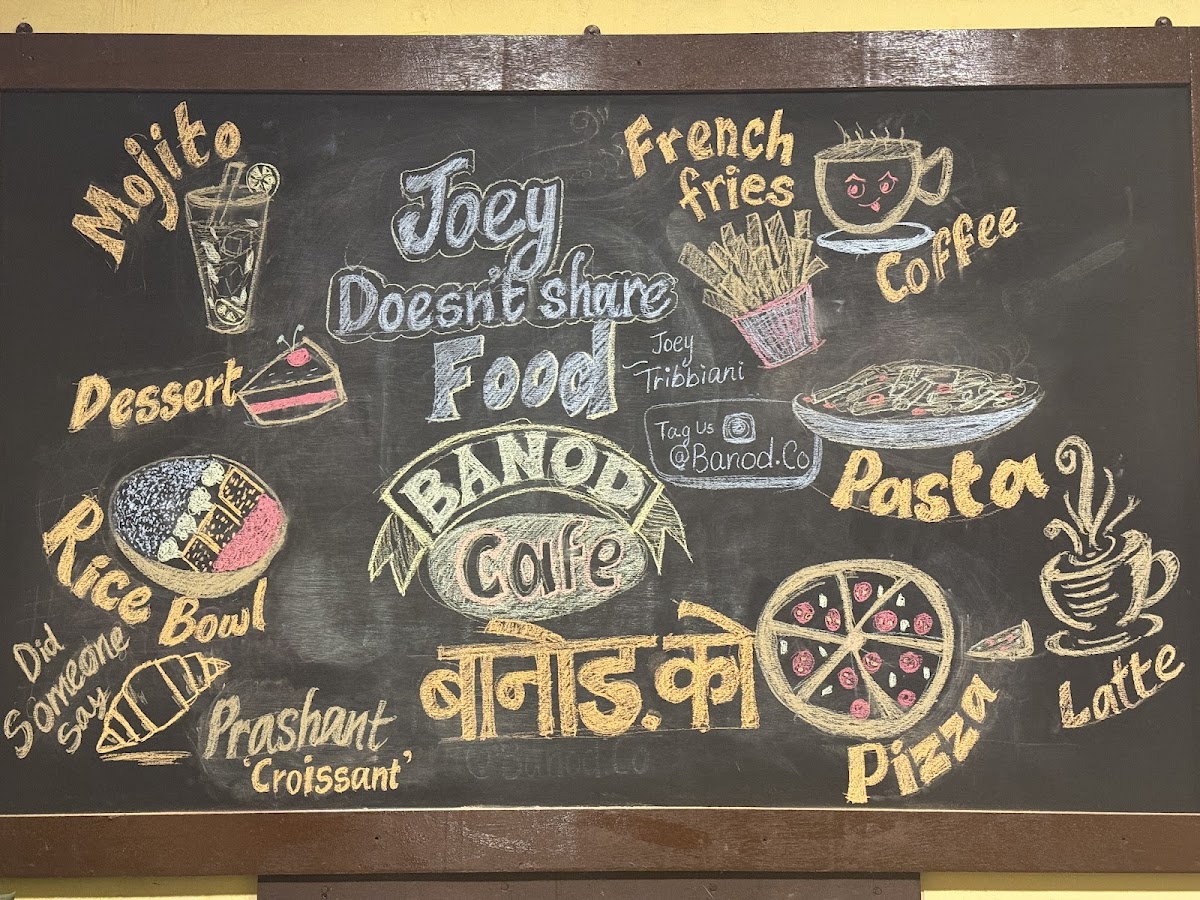 Mojito
Joey
Doesn't share
Food
Joey
Tribbiani
French
fries
Coffee
Dessert
Tag us
@Banod.Co
Pasta
BANOD
Cafe
बानोड.को
@Banod.Co
Rice
Bowl
Did
Someone
say
Prashant
'Croissant'
Pizza
Latte